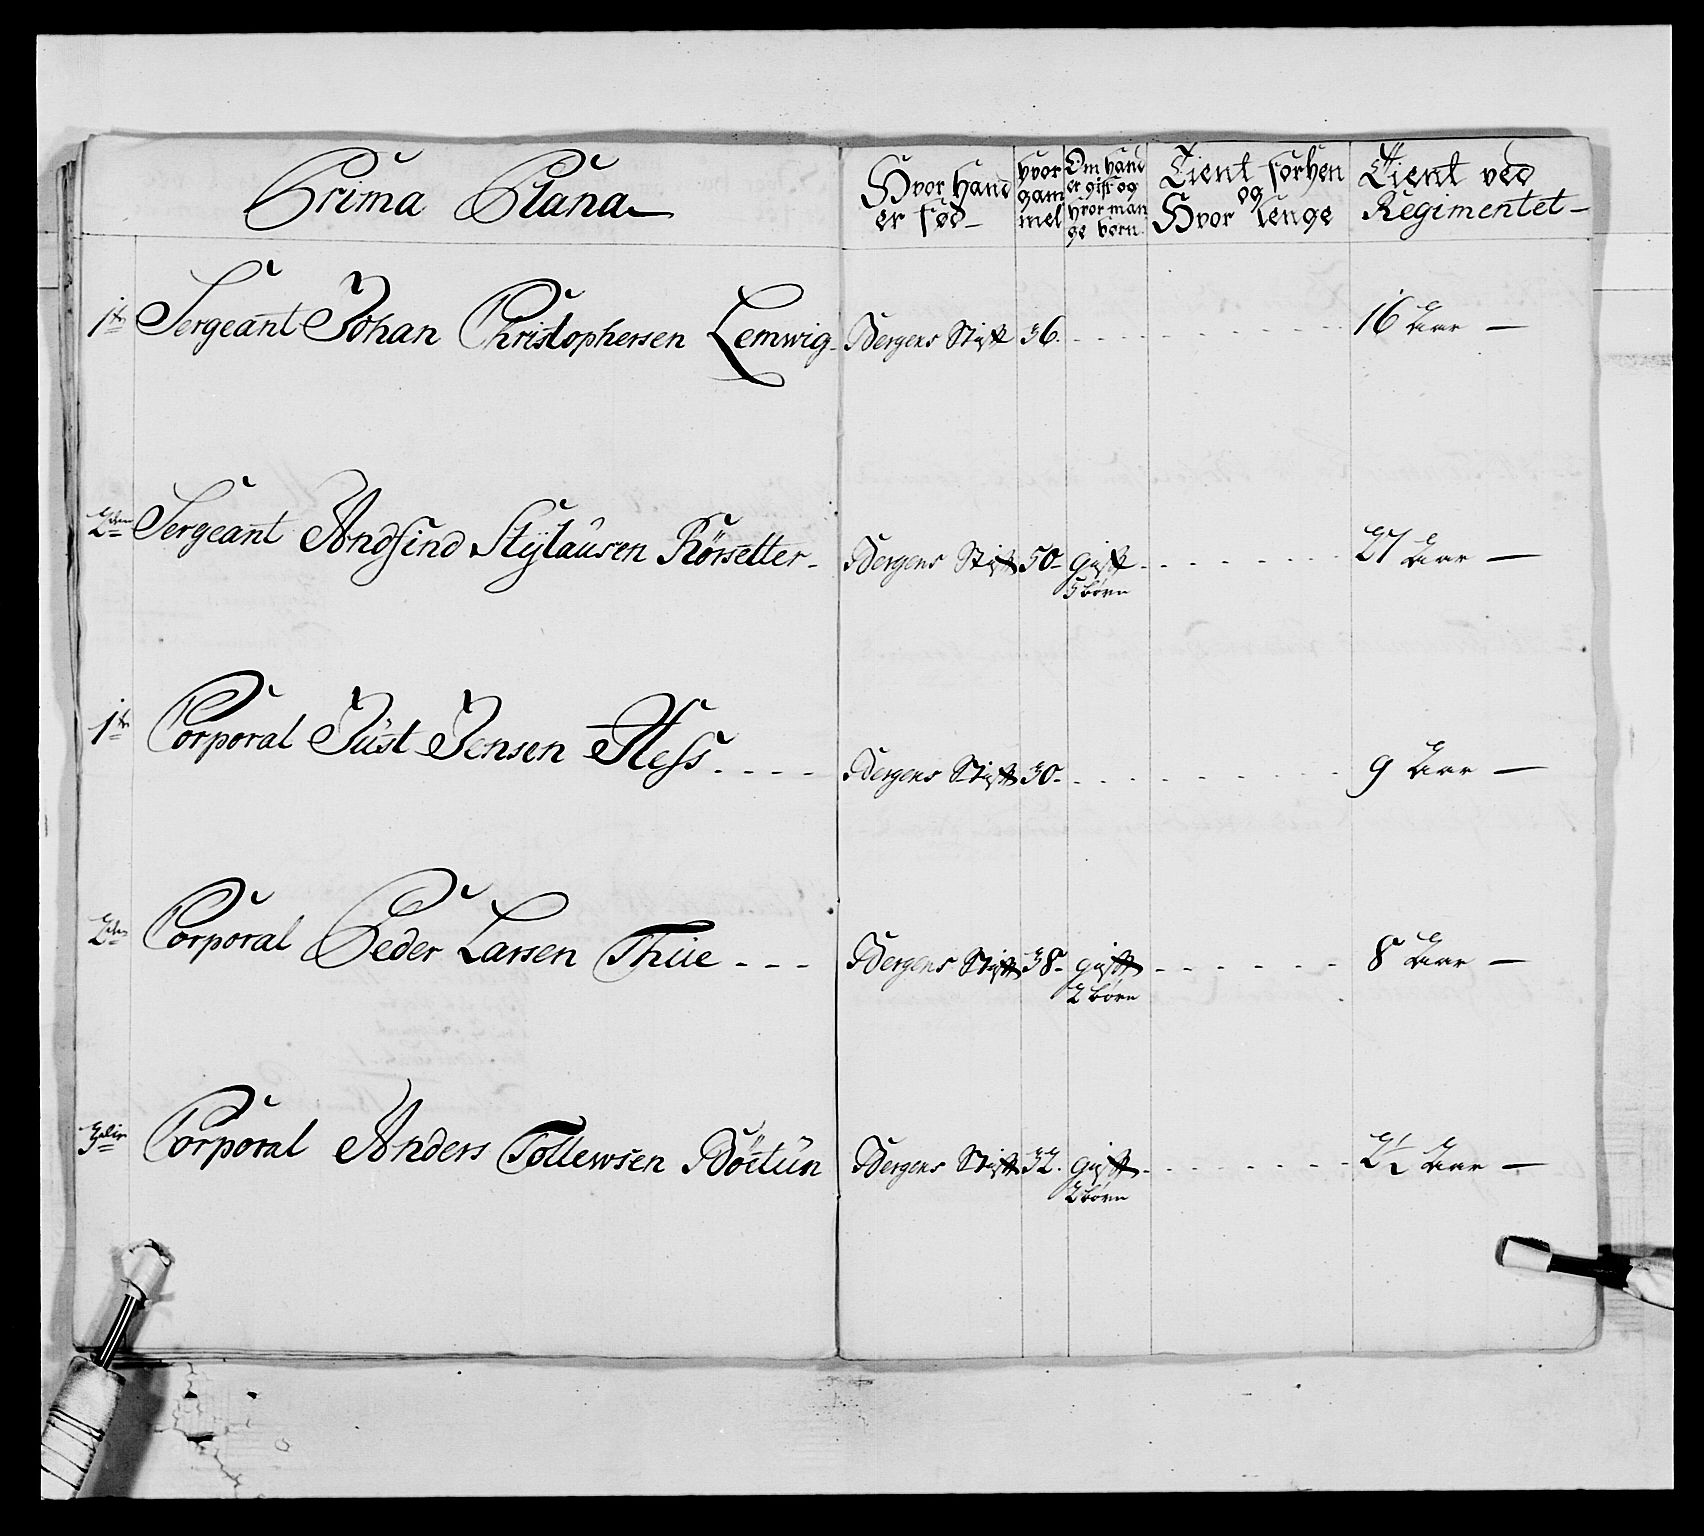 Prima Plana
Hvor hand er fød
hvor gammel
Om hand er gift og hvor mange børn
Tient forhen og Hvor lenge
Tient ved Regimentet
1te Sergeant Johan Christophersen Lemwig Bergens Stift 36 16 Aar
2den Sergeant Andsind Stylausen Rörsetter Bergens Stift 50 gift 5 börn 27 Aar
1te Corporal Jüst Jensen Hess Bergens Stift 30 9 Aar
2den Corporal Peder Larsen Thüe Bergens Stift 38 gift 2 börn 8 Aar
3die Corporal Anders Tollewsen Böetün Bergens Stift 32 gift 2 börn 2½ Aar